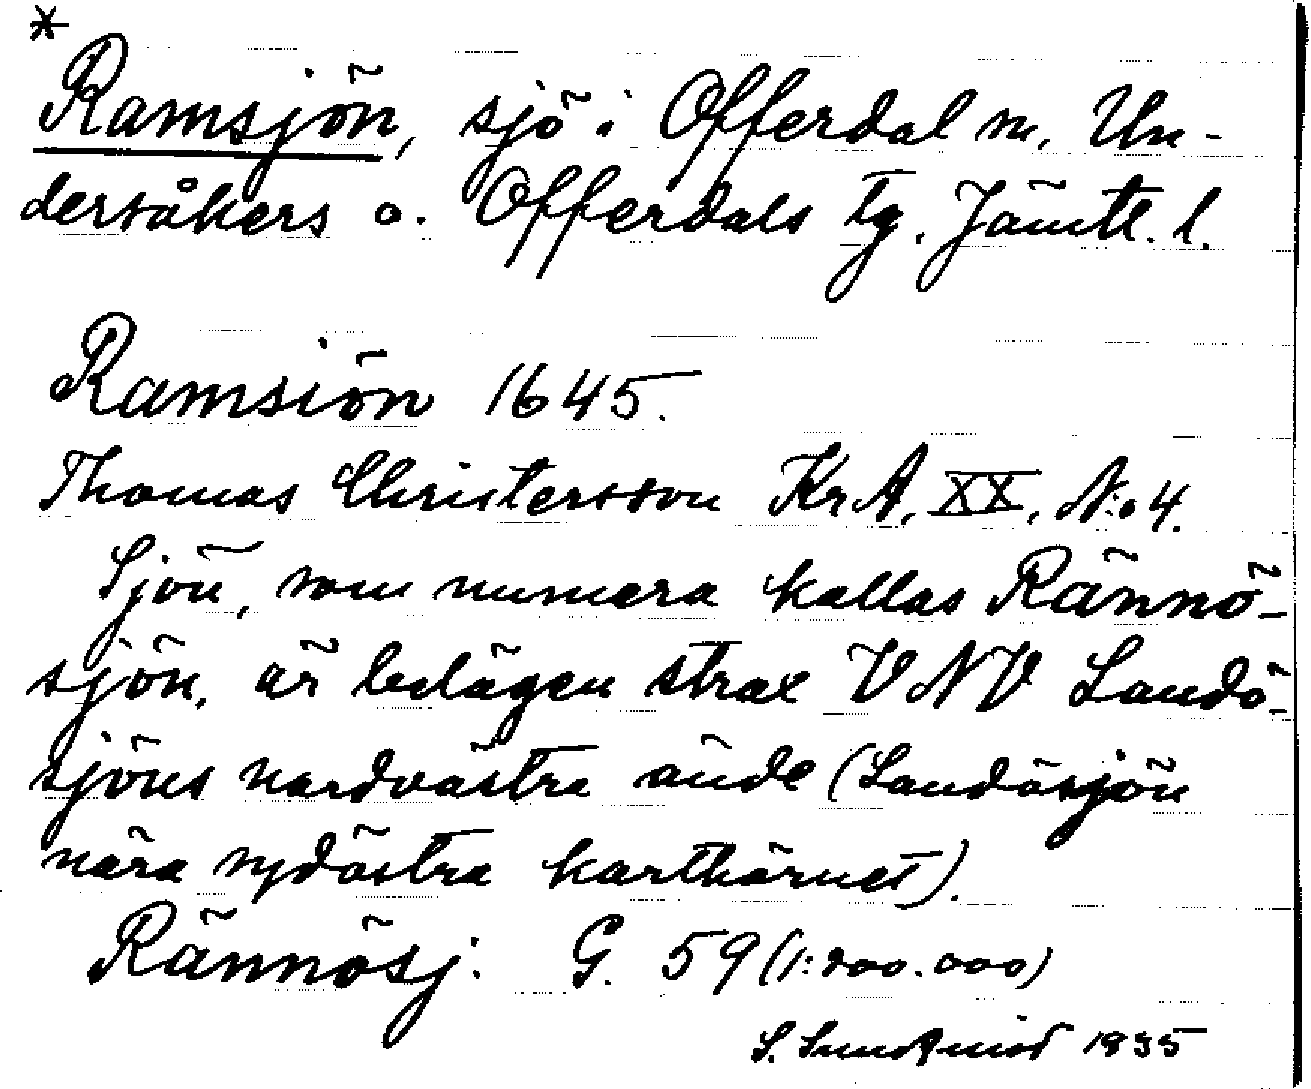 *
Ramsjön, sjö i Offerdal m. Un-
dersåkers o. Offerdals tg. Jämtl. l.
Ramsiön 1645.
Thomas Christersson KrA, XX, N:o 4.
Sjön, som numera kallas Rännö-
sjön, är belägen strax VNV Landö-
sjöns nordvästra ände (Landösjön
nära sydöstra karthörnet).
Rännösj. G. 59 (1:200.000)
S. 1935